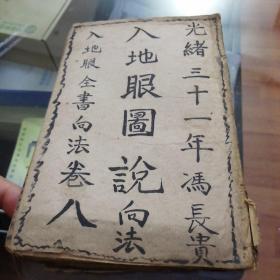 光緒三十一年馮長貴
入地眼圖說向法
入地眼全書向法卷八